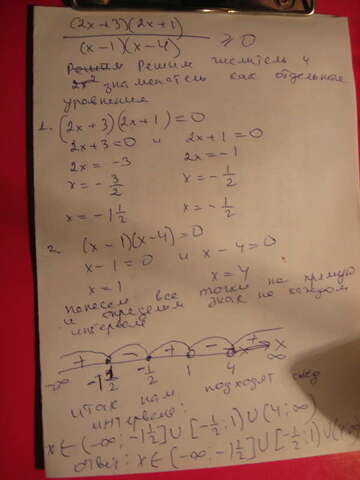 (2x+3)(2x+1)
(x-1)(x-4) ≥ 0
Решим числитель и
знаменатель как отдельное
уравнения
1. (2x+3)(2x+1)=0
2x+3=0 и 2x+1=0
2x=-3 2x=-1
x=-3/2 x=-1/2
x=-1 1/2 x=-1/2
2. (x-1)(x-4)=0
x-1=0 и x-4=0
x=1 x=4
нанесем все точки на прямую
и определим знак на каждом
интервале
+ - + - +
-∞ -1 1/2 -1/2 1 4 x ∞
итак нам подходят след
интервале:
x∈(-∞;-1 1/2]∪[-1/2;1)∪(4;∞)
ответ: x∈(-∞;-1 1/2]∪[-1/2;1)∪(4;∞)